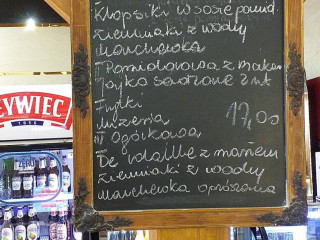 Klopsiki w sosie pomid.
ziemniaki z wody
Marchewka
II Pomidorowa z makar
Jajko sadzone 2 szt
Frytki
Mizeria 17,00
III Ogórkowa
De volaille z masłem
ziemniaki z wody
Marchewka oprószana
ŻYWIEC